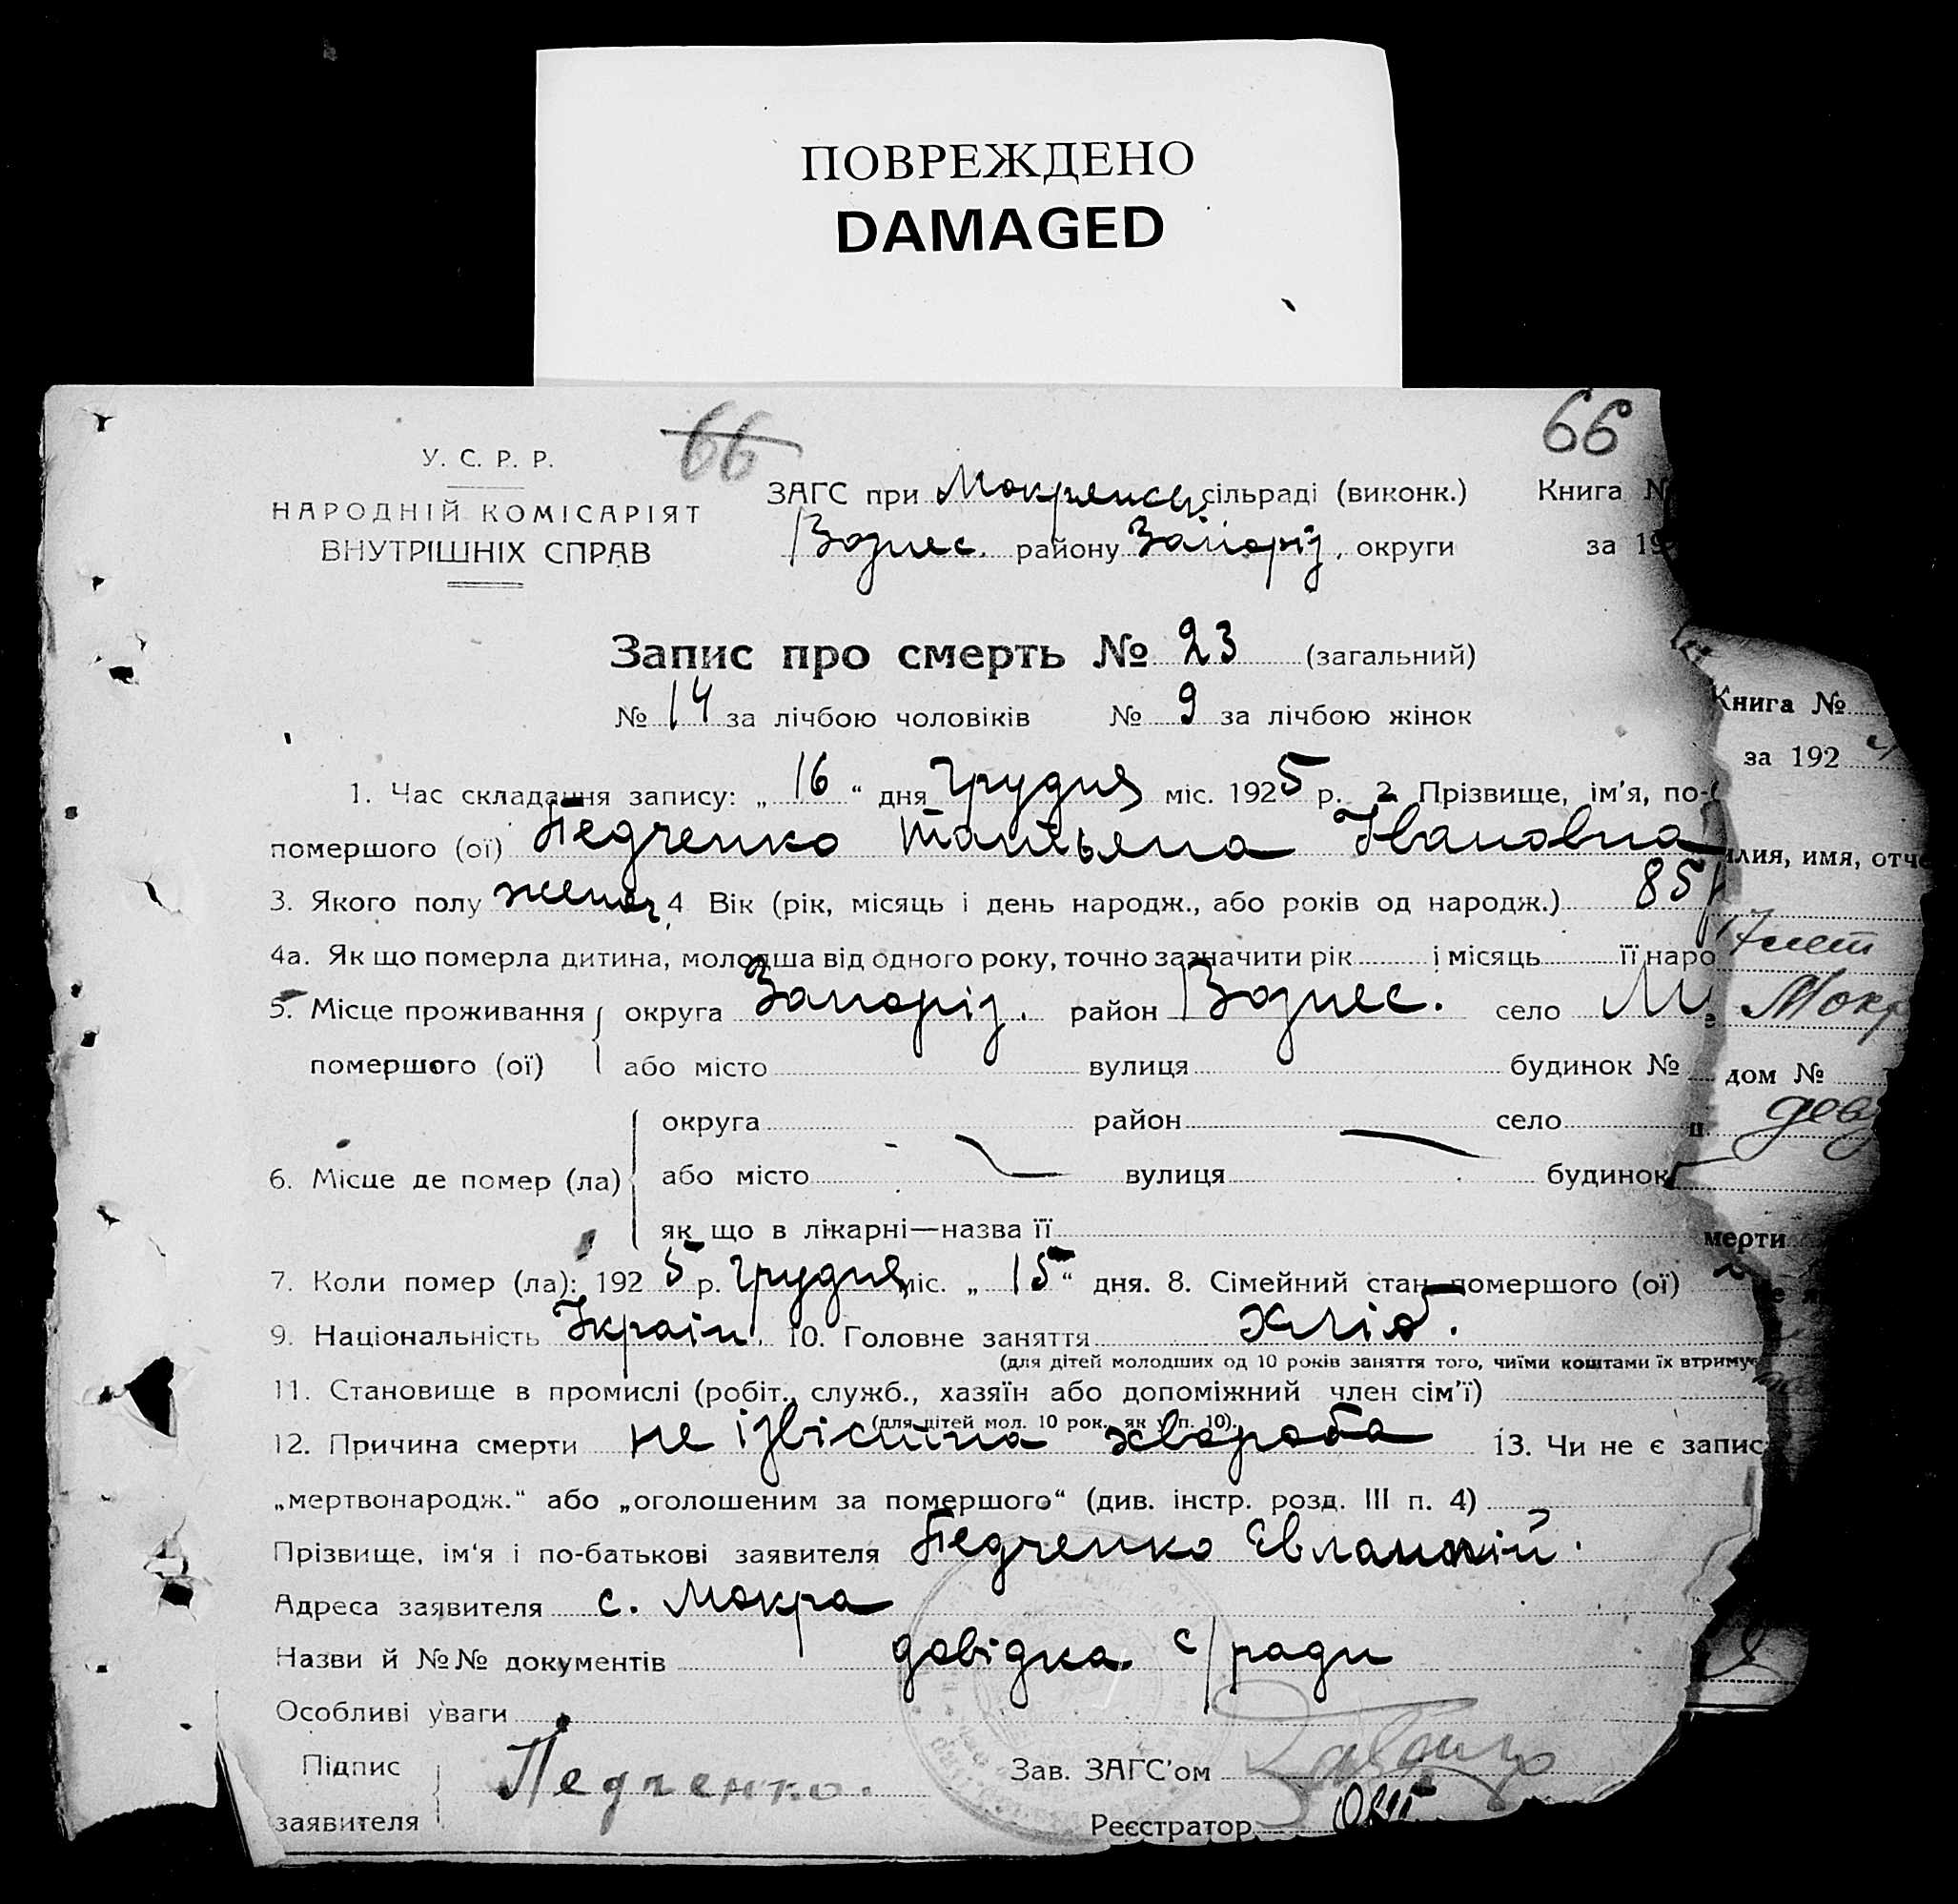 ПОВРЕЖДЕНО
DAMAGED
66
66
У. С. Р. Р.
НАРОДНІЙ КОМІСАРІЯТ
ВНУТРІШНІХ СПРАВ
ЗАГС при Мокрянськ. сільраді (виконк.) Книга №
Вознес. району Запоріз, округи за 19
Запис про смерть № 23 (загальний)
№ 14 за лічбою чоловіків № 9 за лічбою жінок
1. Час складання запису: „ 16 “ дня Грудня міс. 1925 р. 2. Прізвище, ім'я, по-
помершого (ої) Педченко Татьяна Івановна
3. Якого полу женоч, 4 Вік (рік, місяць і день народж., або років од народж.) 85
4а. Як що померла дитина, молодша від одного року, точно зазначити рік і місяць її наро
5. Місце проживання округа Запоріз. район Вознес. село М
помершого (ої) або місто вулиця будинок №
округа район село
6. Місце де помер (ла) або місто вулиця будинок
як що в лікарні—назва її
7. Коли помер (ла): 1925 р. Грудня міс. „ 15 “ дня. 8. Сімейний стан помершого (ої)
9. Національність Україн. 10. Головне заняття Хліб.
(для дітей молодших од 10 років заняття того, чиїми коштами їх втриму
11. Становище в промислі (робіт., служб., хазяїн або допоміжний член сім'ї)
(для дітей мол. 10 рок., як у п. 10).
12. Причина смерти не ізвісттна хвороба 13. Чи не є запис
„мертвонародж.“ або „оголошеним за помершого“ (див. інстр. розд. III п. 4)
Прізвище, ім'я і по-батькові заявителя Педченко Евлампій.
Адреса заявителя с. Мокра
Назви й №№ документів довідка с/ради
Особливі уваги
Підпис
заявителя Педченко.
Зав. ЗАГС'ом
Реєстратор
Книга №
за 192
илия, имя, отче
17 лет
Мокр
дом №
мерти